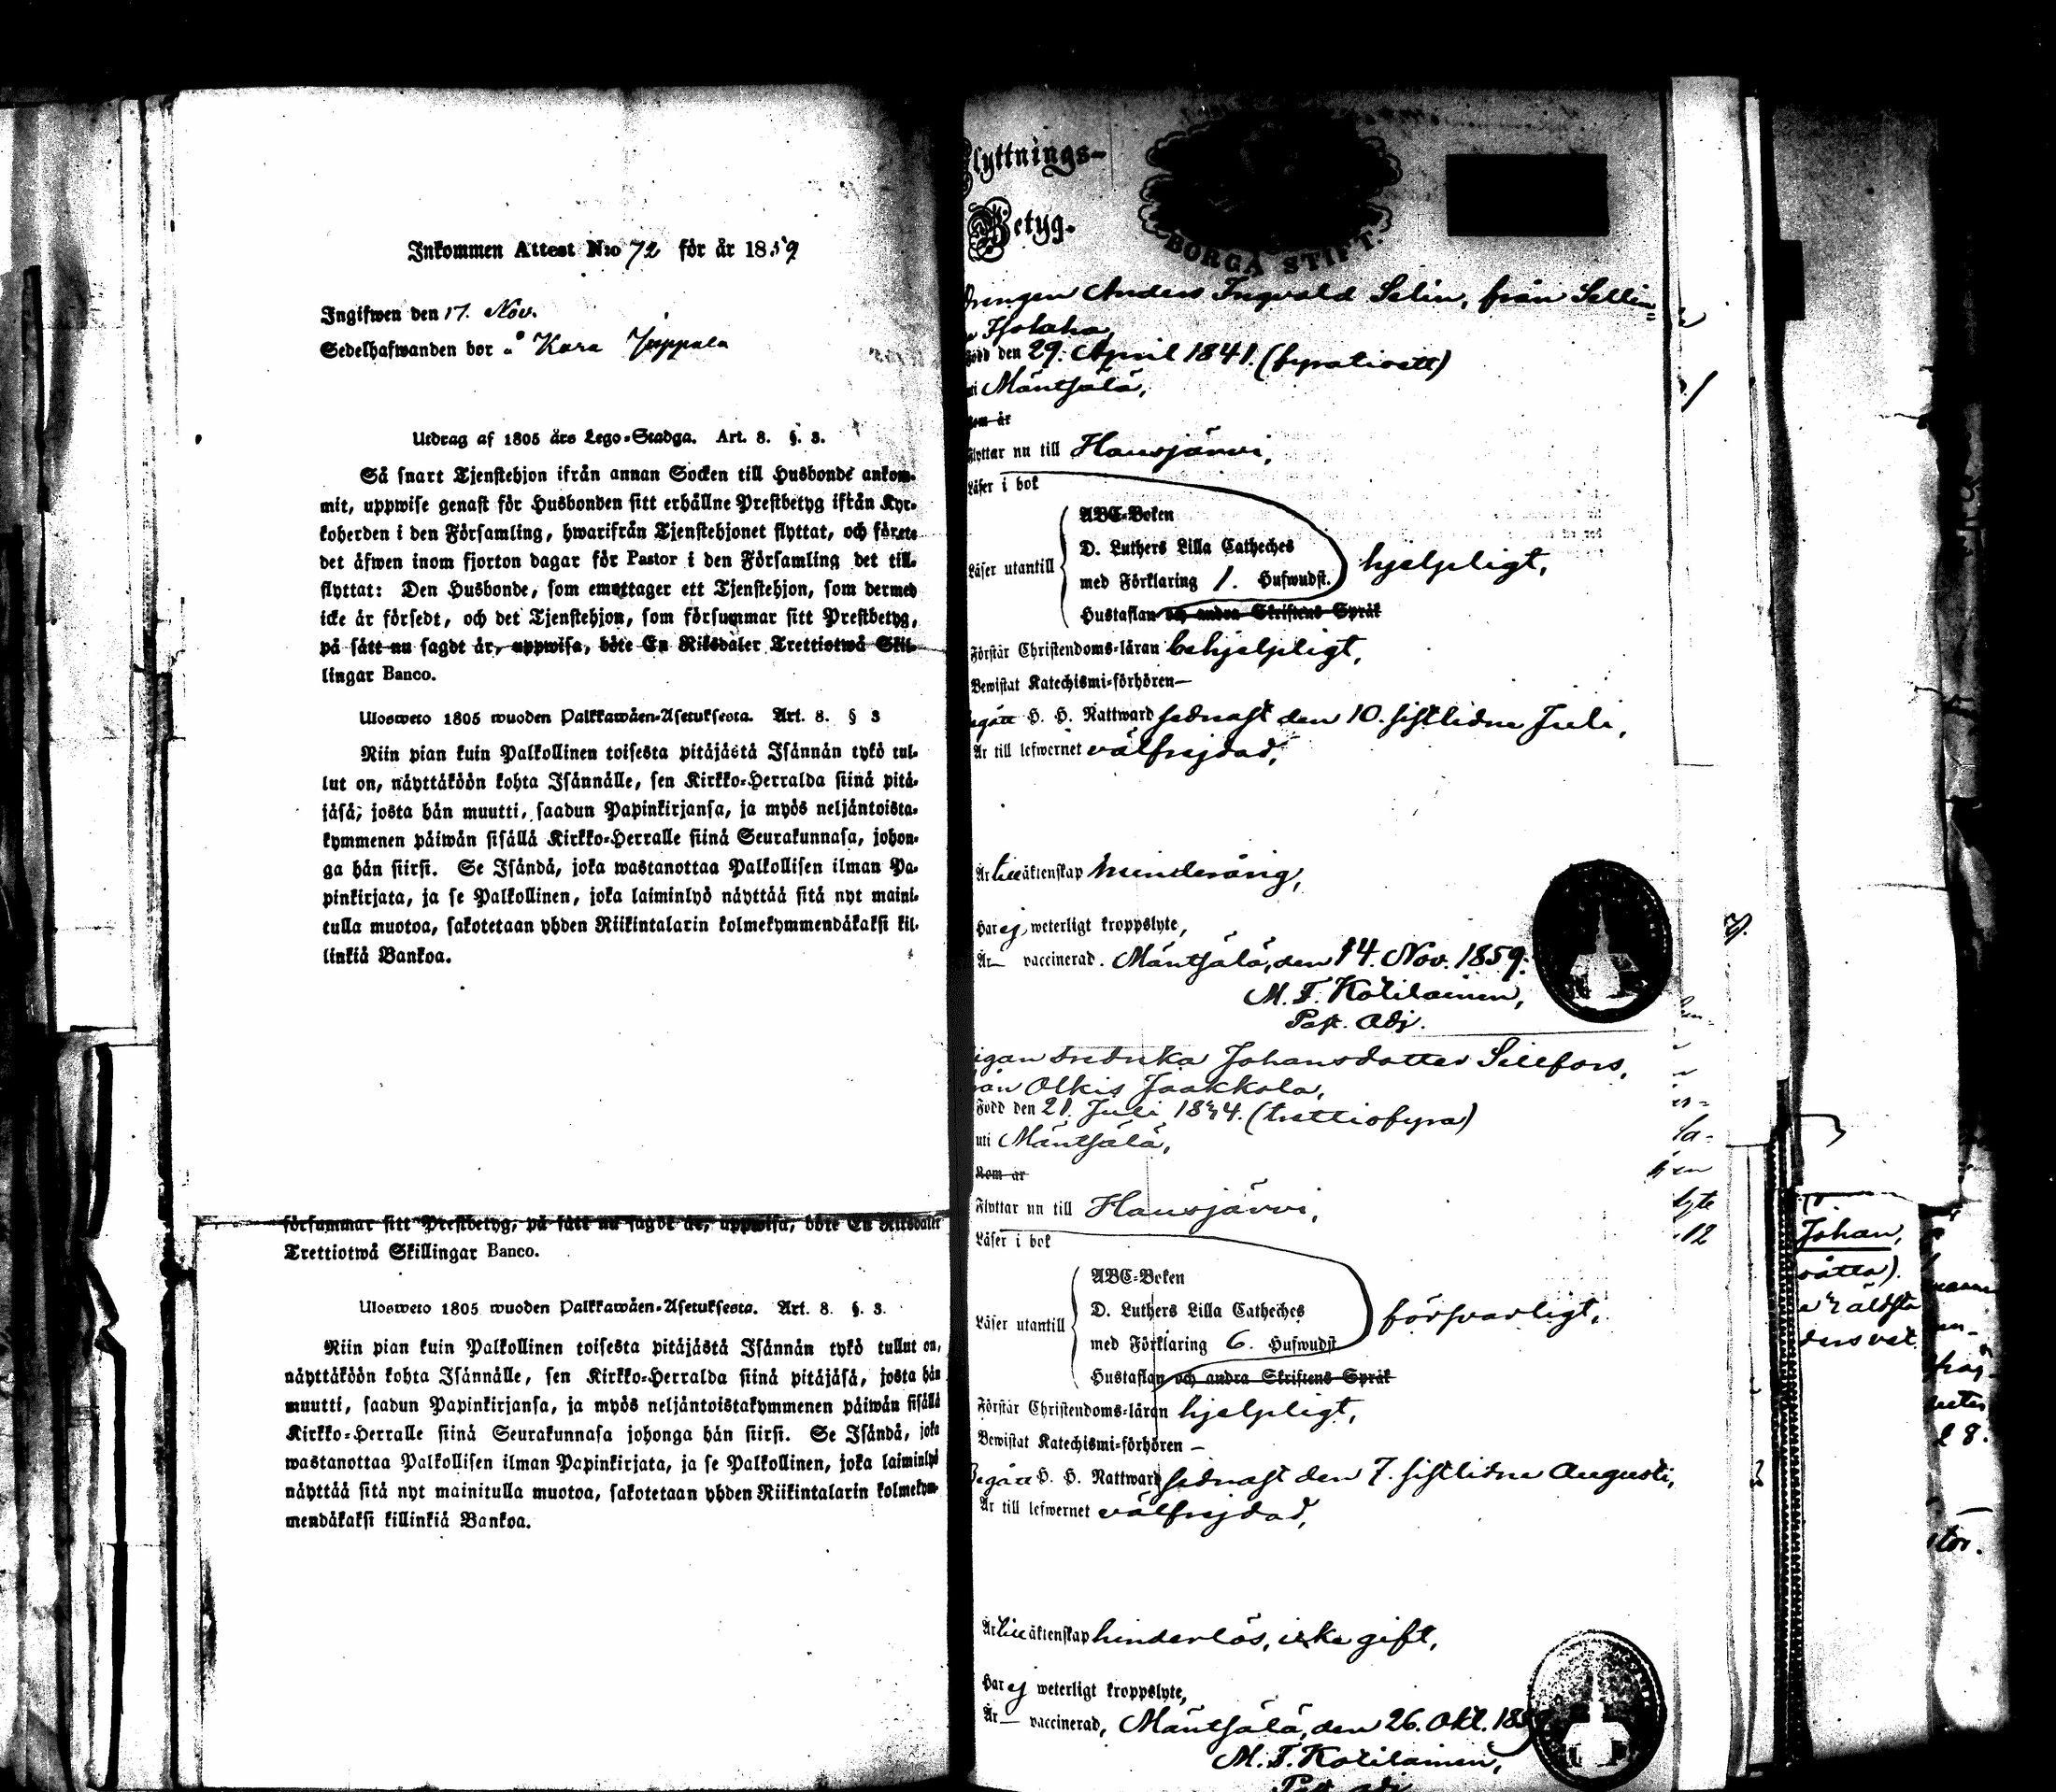 Inkommen Attest N:o 72 för år 1859
Ingifwen den 17. Nov.
Sedelhafwanden bor å Kara Juppala
Utdrag af 1805 års Lego-Stadga. Art. 8. §. 3.
Så snart Tjenstehjon ifrån annan Socken till Husbonde ankom-
mit, uppwise genast för Husbonden sitt erhållne Prestbetyg ifrån Kyr-
koherden i den Församling, hwarifrån Tjenstehjonet flyttat, och förete
det äfwen inom fjorton dagar för Pastor i den Församling det till-
flyttat: Den Husbonde, som emottager ett Tjenstehjon, som dermed
icke är försedt, och det Tjenstehjon, som försummar sitt Prestbetyg,
på sätt nu sagdt är, uppwisa, böte En Riksdaler Trettiotwå Skil-
lingar Banco.
Ulosweto 1805 wuoden Palkkawäen-Asetuksesta. Art. 8. § 3
Niin pian kuin Palkollinen toisesta pitäjästä Isännän tykö tul-
lut on, näyttäköön kohta Isännälle, sen Kirkko-Herralda siinä pitä-
jäsä, josta hän muutti, saadun Papinkirjansa, ja myös neljäntoista-
kymmenen päiwän sisällä Kirkko-Herralle siinä Seurakunnasa, johon-
ga hän siirsi. Se Isändä, joka wastanottaa Palkollisen ilman Pa-
pinkirjata, ja se Palkollinen, joka laiminlyö näyttää sitä nyt maini-
tulla muotoa, sakotetaan yhden Riikintalarin kolmekymmendäkaksi kil-
linkiä Bankoa.
försummar sitt Prestbetyg, på sätt nu sagdt är, uppwisa, böte En Riksdaler
Trettiotwå Skillingar Banco.
Ulosweto 1805 wuoden Palkkawäen-Asetuksesta. Art. 8. §. 3.
Niin pian kuin Palkollinen toisesta pitäjästä Isännän tykö tullut on,
näyttäköön kohta Isännälle, sen Kirkko-Herralda siinä pitäjäsä, josta hän
muutti, saadun Papinkirjansa, ja myös neljäntoistakymmenen päiwän sisällä
Kirkko-Herralle siinä Seurakunnasa johonga hän siirsi. Se Isändä, joka
wastanottaa Palkollisen ilman Papinkirjata, ja se Palkollinen, joka laiminlyö
näyttää sitä nyt mainitulla muotoa, sakotetaan yhden Riikintalarin kolmekym-
mendäkaksi killinkiä Bankoa.
Flyttnings-
Betyg.
BORGÅ STIFT.
Drengen Anders Ingvald Selin, från Sellin-
Isotaho,
Född den 29. April 1841. (fyratioett)
uti Mäntsälä,
Kom år
Flyttar nu till Hausjärvi,
Läser i bok
ABC-Boken
D. Luthers Lilla Catheches
Läser utantill med Förklaring 1. Hufwudst. hjelpligt,
Hustaflan och andra Skriftens Språk
Förstår Christendoms-läran behjelpligt,
Bewistat Katechismi-förhören —
Begått H. H. Nattward sednast den 10. sistlidne Juli,
Är till lefwernet välfrejdad,
Är till äktenskap minderårig,
Har ej weterligt kroppslyte,
Är — vaccinerad. Mäntsälä, den 14. Nov. 1859.
M. F. Kotilainen,
Past. Adj.
Pigan Fredrika Johansdotter Sillfors,
från Olkis Jaakkola,
Född den 21. Juli 1834. (trettiofyra)
uti Mäntsälä,
Kom år
Flyttar nu till Hausjärvi,
Läser i bok
ABC-Boken
D. Luthers Lilla Catheches
Läser utantill med Förklaring 6. Hufwudst. försvarligt,
Hustaflan och andra Skriftens Språk
Förstår Christendoms-läran hjelpligt,
Bewistat Katechismi-förhören —
Begått H. H. Nattward sednast den 7. sistlidne Augusti,
Är till lefwernet välfrejdad,
Är till äktenskap hinderlös, icke gift,
Har ej weterligt kroppslyte,
Är — vaccinerad, Mäntsälä, den 26. Okt. 1859
M. F. Kotilainen,
Past. adj.
Johan,